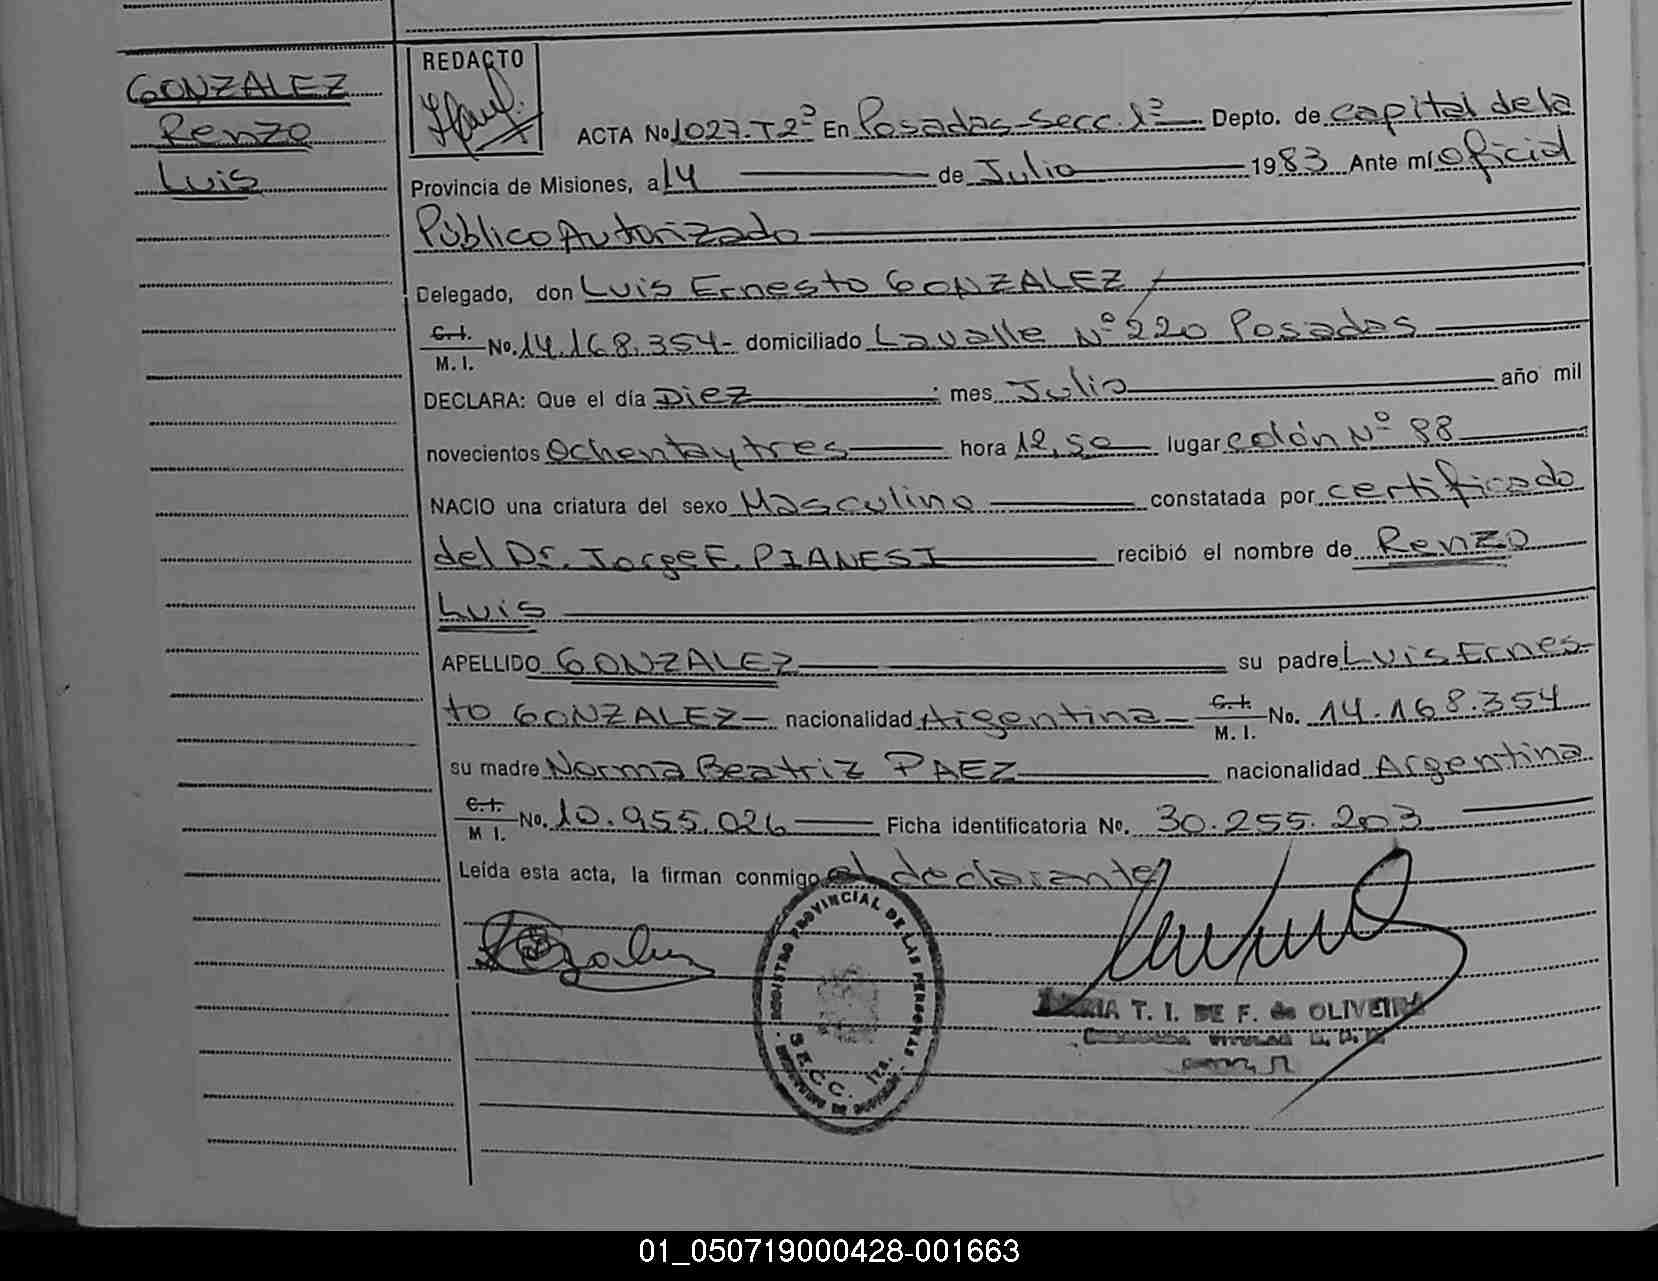 GONZALEZ
Renzo
Luis
REDACTO
ACTA No 1027-T2º En Posadas-Secc. 1ª Depto. de Capital de la
Provincia de Misiones, a 14 de Julio 1983 Ante mí Oficial
Público Autorizado
Delegado, don Luis Ernesto GONZALEZ
C.I.
M.I. No. 14.168.354- domiciliado Lavalle Nº 220 Posadas
DECLARA: Que el día Diez ; mes Julio año mil
novecientos Ochenta y tres hora 12,50 lugar Colón Nº 88
NACIO una criatura del sexo Masculino constatada por certificado
del Dr. Jorge E. PIANESI recibió el nombre de Renzo
Luis
APELLIDO GONZALEZ su padre Luis Ernes-
to GONZALEZ nacionalidad Argentina C.I. M.I. No. 14.168.354
su madre Norma Beatriz PAEZ nacionalidad Argentina
C.I.
M I. No. 10.955.026 Ficha identificatoria No. 30.255.203
Leída esta acta, la firman conmigo el declarante
REGISTRO PROVINCIAL DE LAS PERSONAS
SECC. 1ra.
MARIA T. I. DE F. de OLIVEIRA
01_050719000428-001663